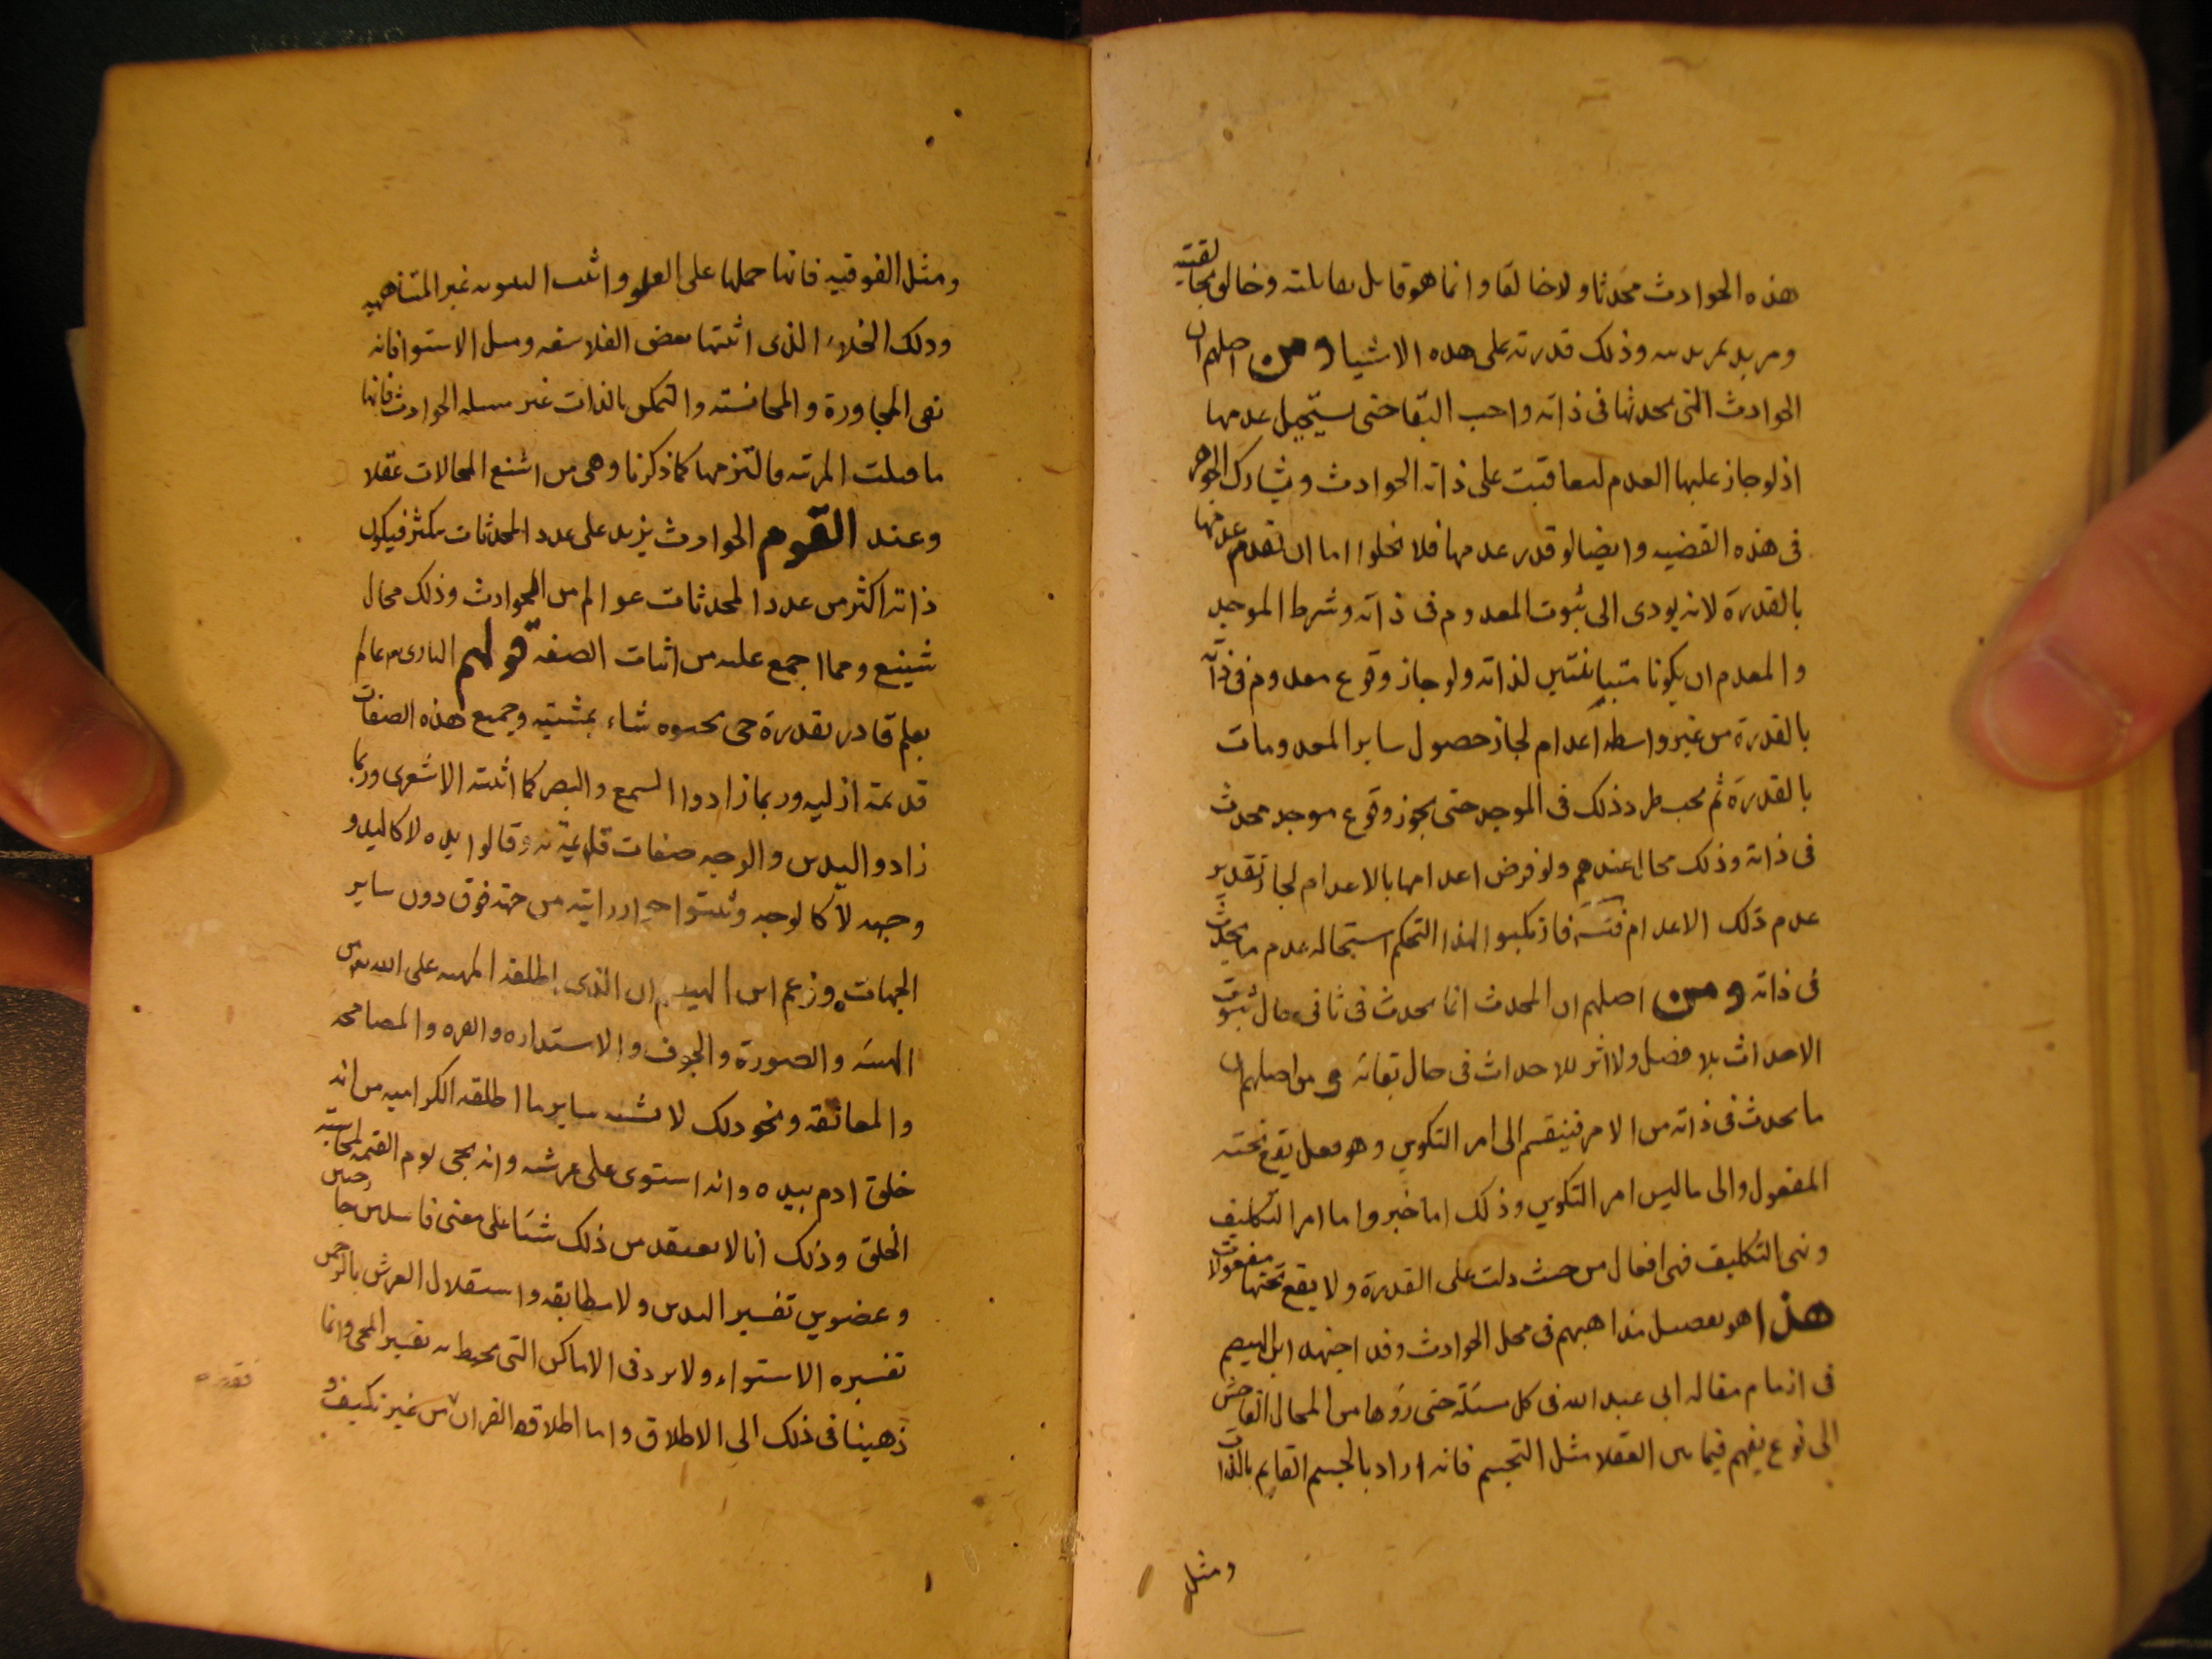 هذه الحوادث محدثا ولا خالقا وانما هو قايل بقايليته وخالق بخالقيته
ومريد بمريديته وذلك قدرته على هذه الاشيا ومن اصلهم ان
الحوادث التى يحدثها فى ذاته واجب البقا حتى يستحيل عدمها
اذ لو جاز عليها العدم لتعاقبت على ذاته الحوادث ويشارك الجوهر
فى هذه القضيه وايضا لو قدر عدمها فلا يخلوا اما ان تقدم عدمها
بالقدرة لانه يودى الى ثبوت المعدوم فى ذاته وشرط الموجد
والمعدم ان يكونا متباينين لذاته ولو جاز وقوع معدوم فى ذاته
بالقدرة من غير واسطه اعدام لجاز حصول ساير المعدومات
بالقدرة ثم يجب طرد ذلك فى الموجد حتى يجوز وقوع موجد محدث
فى ذاته وذلك محال عندهم ولو فرض اعدامها بالاعدام لجاز تقدير
عدم ذلك الاعدام فارتكبوا لهذا التحكم استحاله عدم ما يحدث
فى ذاته ومن اصلهم ان المحدث انما يحدث فى ثانى حال ثبوت
الاحداث بلا فصل ولا اثر للاحداث فى حال بقائه ومن اصلهم ان
ما يحدث فى ذاته من الامر فينقسم الى امر التكوين وهو فعل يقع تحته
المفعول والى ما ليس امر التكوين وذلك اما خبر واما امر التكليف
ونهى التكليف فهى افعال من حيث دلت على القدرة ولا يقع تحتها مفعولات
هذا هو تفصيل مذاهبهم فى محل الحوادث وقد اجتهد ابن الهيصم
فى ازمام مقاله ابى عبد الله فى كل مسئلة حتى ردها من المحال الفاحش
الى نوع يفهم فيما بين العقلا مثل التجسيم فانه اراد بالجسم القايم بالذات
ومثل
ومثل الفوقيه فانها حملها على العلو واثبت البينونه غير المتناهيه
وذلك الخلاء الذى اثبتها بعض الفلاسفه ومثل الاستوا فانه
نفى المجاورة والمماسه والتمكن بالذات غير مسئله الحوادث فانها
ما قبلت المرمه فالتزمها كما ذكرنا وهى من اشنع المحالات عقلا
وعند القوم الحوادث يزيد على عدد المحدثات بكثير فيكون
ذاته اكثر من عدد المحدثات عوالم من الحوادث وذلك محال
شنيع ومما اجمع عليه من اثبات الصفة قولهم البارى عالم
بعلم قادر بقدرة حى بحيوه شاء بمشيته وجميع هذه الصفات
قديمة ازليه وربما زادوا السمع والبصر كما اثبته الاشعرى وربما
زادوا اليدين والوجه صفات قديمة وقالوا يده لا كاليد و
وجه لا كالوجه وثبتوا جواز رايته من جهة فوق دون ساير
الجهات وزعم ابن الهيصم ان الذى اطلقه المشبهه على الله من
الهيئه والصورة والجوف والاستداره والوفره والمصافحه
والمعانقه ونحو ذلك لا يشبه ساير ما اطلقه الكراميه من انه
خلق ادم بيده وانه استوى على عرشه وانه يجى يوم القيمه لمحاسبة
الخلق وذلك انا لا نعتقد من ذلك شيئا على معنى فاسد من جارحتين
وعضوين تفسير اليدين ولا مطابقه واستقلال العرش بالرحمن
تفسيره الاستواء ولا ترد فى الاماكن التى يحيط به تفسير المجى وانما
ذهبنا فى ذلك الى الاطلاق واما اطلاقه القران من غير تكييف و